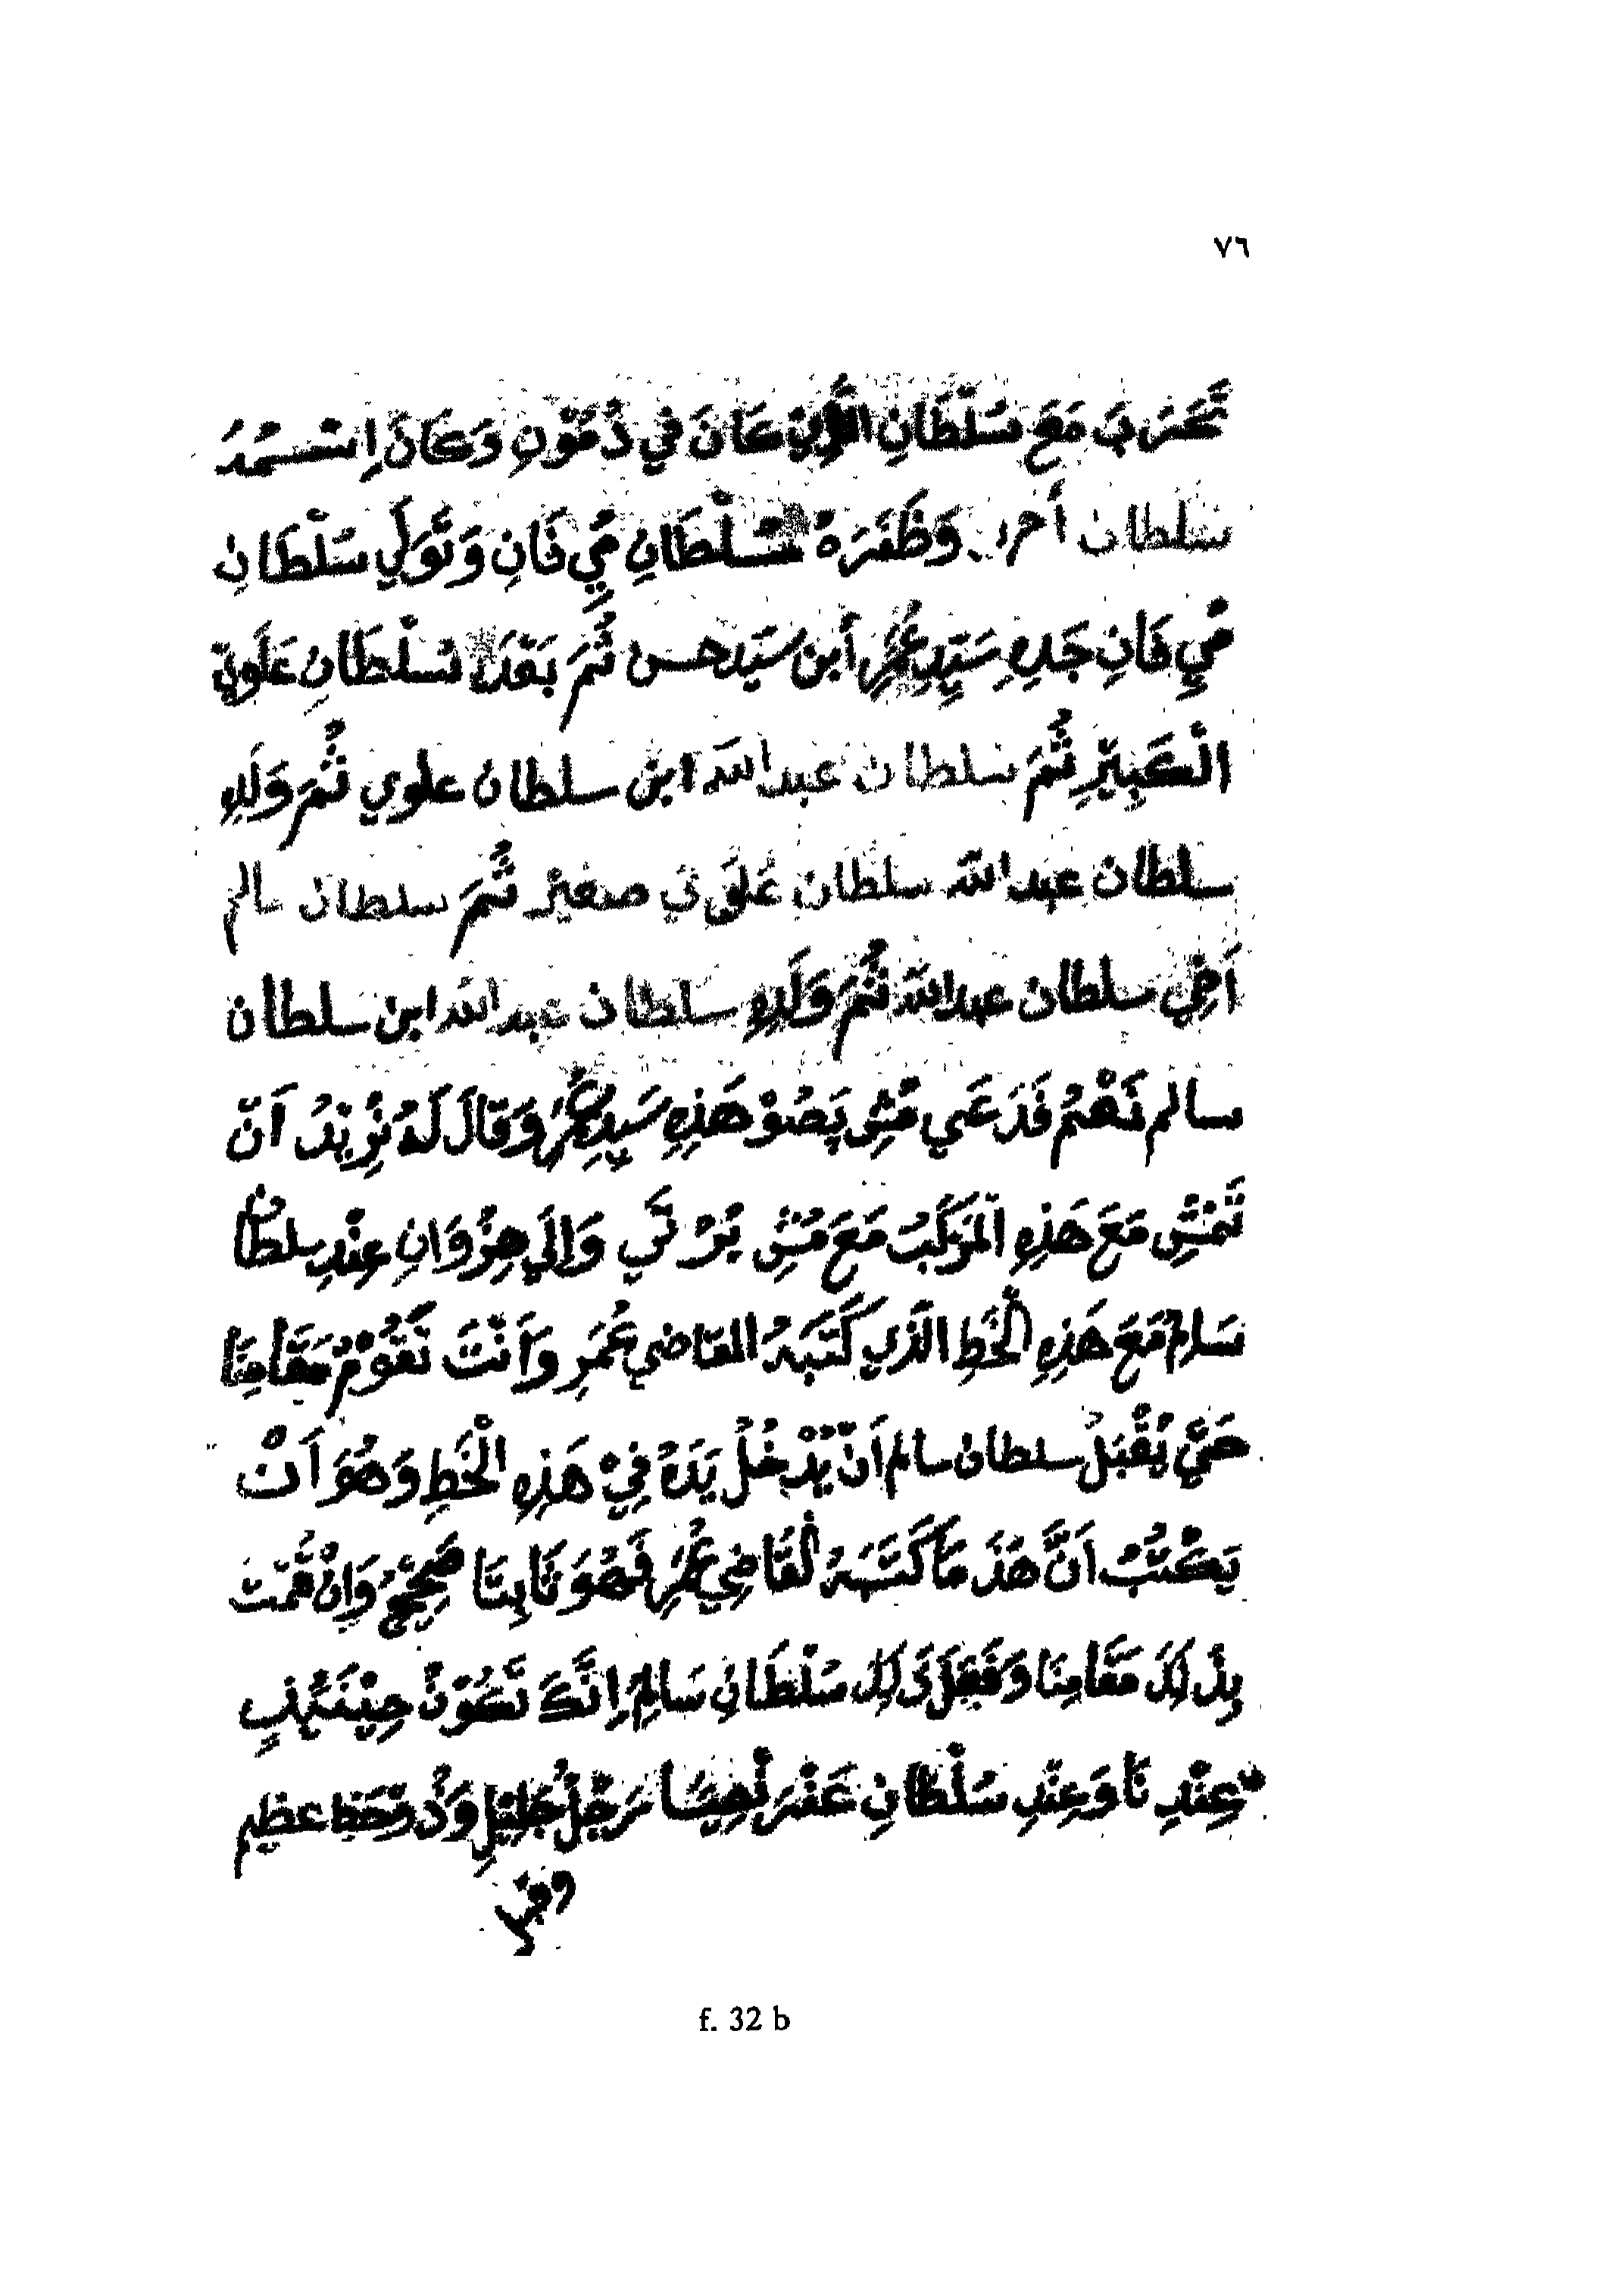 ٧٦
تَحَرَبَ مَعَ سُلْطَانِ الَّذِي كَانَ فِي دُمَوْنِ وَكَانَ اِسْمُهُ
سلطان أحمد وَظَفَرَهُ سُلْطَانِ مِي فَانِ وَتَوَلَي سُلْطَانِ
مِي فَانِ جَدِهِ سَيِّدِ عُمَرِ أبن سَيّد حسن ثُمَّ بَعْدَ سُلْطَانِ عَلَوِي
الْكَبِيْرِ ثُمَّ سلطان عبدالله ابن سلطان علوي ثُمَّ وَلَدِهِ
سلطان عبدالله سلطان عَلَوِي صغيرْ ثُمَّ سلطان سالم
اَخِي سلطان عبدالله ثُمَّ وَلَدِهِ سلطان عبدالله ابن سلطان
سالم نَعَمْ فَدَعَي مُشِ پَصُوْ هَذِهِ سَيِدِ عُمَرْ وَقَالَ لَهُ نُرِيْدُ اَنّ
تَمْشِ مَعَ هَذِهِ الْمَرْكَبُ مَعَ مُشِ بُرْنَي وَالِي جِزُوَانِ عِنْدِ سلطان
سَلامُ مَعَ هَذِهِ الْخَطِ الَّذِي كَتَبَهُ القاضي عُمَرِ وَاَنْتَ تَقُوْمُ مَقَامِنَا
حَتَّي يُقْبَلُ سلطان سالم اَنْ يُدْخُلُ يَدَهُ فِيْ هَذِهِ الْخَطِ وَهُوَ اَنْ
يَكْتُبُ اَنَّ هَذَ مَا كَتَبَهُ لْقَاضِي عُمَرِ فَهُوَ ثَابِتَا صَحِيْحٌ وَاِنْ قُمْتَ
بِذَلِكَ مَقَامِنَا وَفَعَلَ ذَلِكَ سُلْطَانِ سَالِمُ اِنَّكَ تَكُوْنْ حِيْنَئِذٍ
عِنْدِنَا وَعِنْدِ سُلْطَانِ عَنْرَنْجِيْسَا رَجُلُ جَلِيْلِ وَذُوْحَظِ عظيم
وفي
f. 32 b